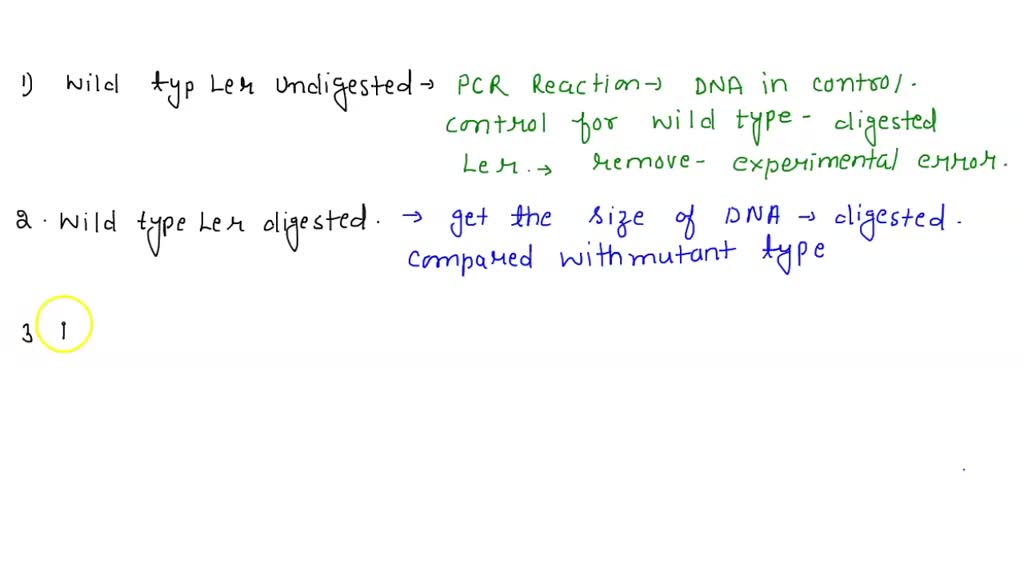 1) Wild typ Ler Undigested → PCR Reaction → DNA in control.
control for wild type - digested
Ler. → remove - experimental error.
2. Wild type Ler digested. → get the size of DNA → digested.
compared withmutant type
3 I